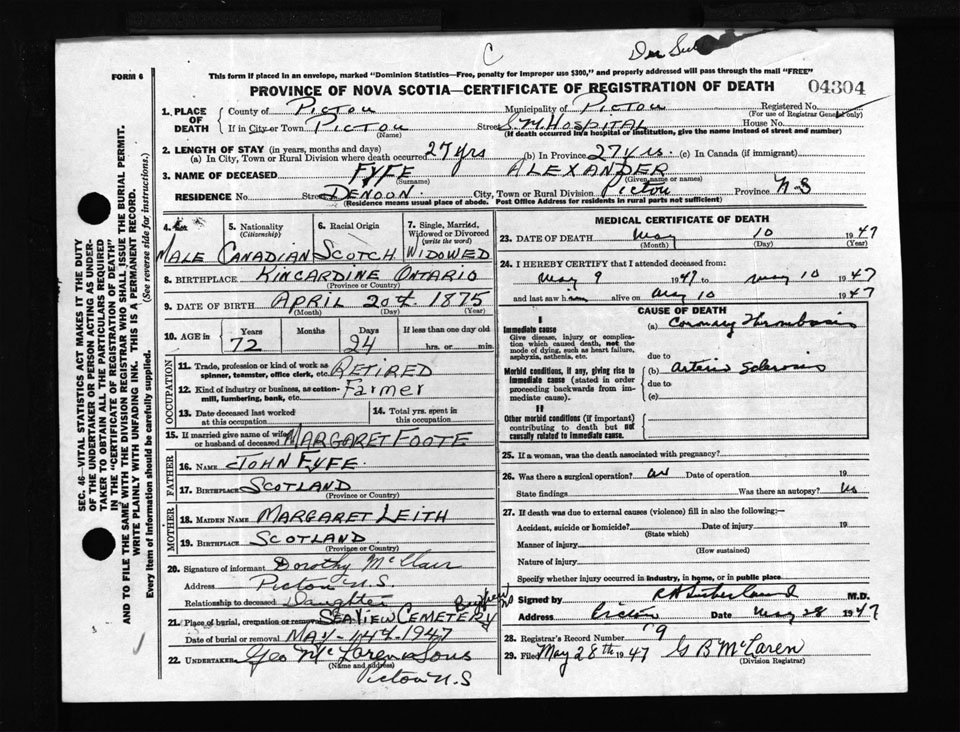 C
FORM 6
This form if placed in an envelope, marked "Dominion Statistics—Free, penalty for improper use $300," and properly addressed will pass through the mail "FREE"
PROVINCE OF NOVA SCOTIA—CERTIFICATE OF REGISTRATION OF DEATH
04304
1. PLACE OF DEATH
County of Pictou Municipality of Pictou Registered No.
(For use of Registrar General only)
If in City or Town Pictou Street S. M. Hospital House No.
(Name) (If death occurred in a hospital or institution, give the name instead of street and number)
2. LENGTH OF STAY (in years, months and days)
(a) In City, Town or Rural Division where death occurred 27 yrs (b) In Province 27 yrs. (c) In Canada (if immigrant)
3. NAME OF DECEASED FYFE ALEXANDER
(Surname) (Given name or names)
RESIDENCE No. Street DENOON. City, Town or Rural Division Pictou Province N S
(Residence means usual place of abode. Post Office Address for residents in rural parts not sufficient)
4. Sex 5. Nationality (Citizenship) 6. Racial Origin 7. Single, Married, Widowed or Divorced (write the word)
MALE CANADIAN SCOTCH WIDOWED
8. BIRTHPLACE KINCARDINE ONTARIO
(Province or Country)
9. DATE OF BIRTH APRIL 20th 1875
(Month) (Day) (Year)
10. AGE in Years Months Days If less than one day
72 24 hrs. or min.
OCCUPATION
11. Trade, profession or kind of work as spinner, teamster, office clerk, etc. RETIRED
12. Kind of industry or business, as cotton-mill, lumbering, bank, etc. Farmer
13. Date deceased last worked at this occupation
14. Total yrs. spent in this occupation
15. If married give name of wife or husband of deceased MARGARET FOOTE
FATHER
16. NAME JOHN FYFE.
17. BIRTHPLACE SCOTLAND
(Province or Country)
MOTHER
18. MAIDEN NAME MARGARET LEITH
19. BIRTHPLACE SCOTLAND
(Province or Country)
20. Signature of informant Dorothy McClair
Address Pictou N.S.
Relationship to deceased Daughter
21. Place of burial, cremation or removal SEAVIEW CEMETERY
Date of burial or removal MAY-14th-1947
22. UNDERTAKER Geo McLaren & Sons
(Name and address)
Pictou N.S
MEDICAL CERTIFICATE OF DEATH
23. DATE OF DEATH May 10 1947
(Month) (Day) (Year)
24. I HEREBY CERTIFY that I attended deceased from:
May 9 1947 to May 10 1947
and last saw him alive on May 10 1947
CAUSE OF DEATH
I
Immediate cause (a) Coronary Thrombosis
Give disease, injury or complication which caused death, not the mode of dying, such as heart failure, asphyxia, asthenia, etc.
due to
Morbid conditions, if any, giving rise to immediate cause (stated in order proceeding backwards from immediate cause).
(b) Arterio Sclerosis
due to
(c)
II
Other morbid conditions (if important) contributing to death but not causally related to immediate cause.
25. If a woman, was the death associated with pregnancy?
26. Was there a surgical operation? Date of operation 19
State findings Was there an autopsy? No
27. If death was due to external causes (violence) fill in also the following:—
Accident, suicide or homicide? Date of injury 19
(State which)
Manner of injury
(How sustained)
Nature of injury
Specify whether injury occurred in industry, in home, or in public place
Signed by R H Sutherland M.D.
Address Pictou Date May 28 1947
28. Registrar's Record Number 79
29. Filed May 28th 1947 G B McLaren
(Division Registrar)
SEC. 46—VITAL STATISTICS ACT MAKES IT THE DUTY
OF THE UNDERTAKER OR PERSON ACTING AS UNDER-
TAKER TO OBTAIN ALL THE PARTICULARS REQUIRED
IN THE "CERTIFICATE OF REGISTRATION OF DEATH"
AND TO FILE THE SAME WITH THE DIVISION REGISTRAR WHO SHALL ISSUE THE BURIAL PERMIT.
WRITE PLAINLY WITH UNFADING INK. THIS IS A PERMANENT RECORD.
Every item of Information should be carefully supplied. (See reverse side for instructions.)